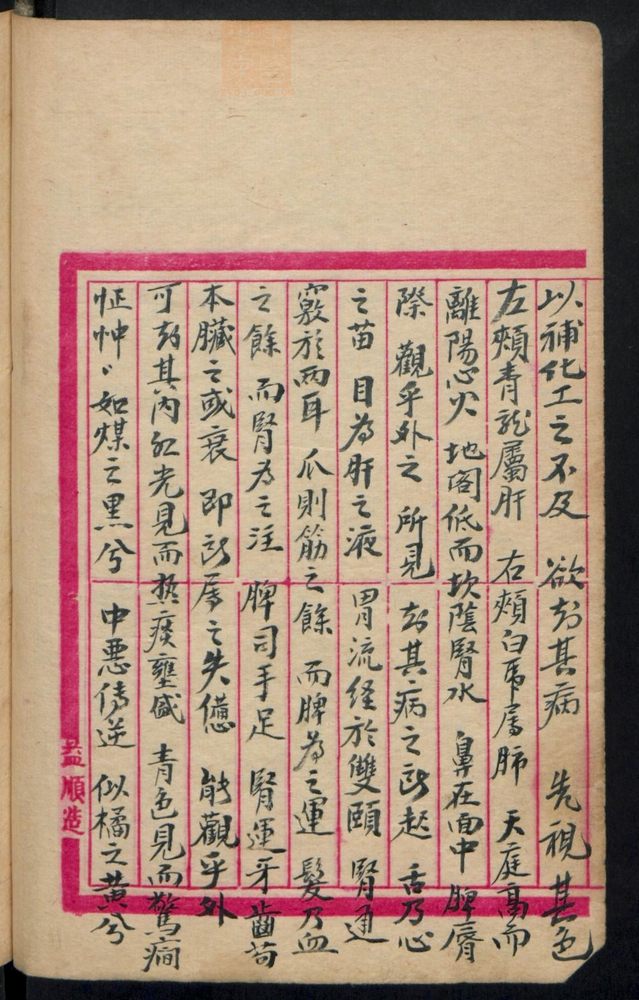 以補化工之不及　欲知其病　先視其色
左頰青龍屬肝　右頰白虎屬肺　天庭高而
離陽心火　地閣低而坎陰腎水　鼻在面中　脾脣
際　觀乎外之所見　知其病之所起　舌乃心
之苗　目為肝之液　胃流経於雙頤　腎通
竅於兩耳　爪則筋之餘　而脾為之運　髮乃血
之餘　而腎為之注　脾司手足　腎運牙齒苟
本臟之或衰　即所屬之失僡　能觀乎外
可知其內红光見而热痰壅盛　青色見而驚癎
怔忡〻如煤之黑兮　中悪傳逆　似橘之黄兮
益順造